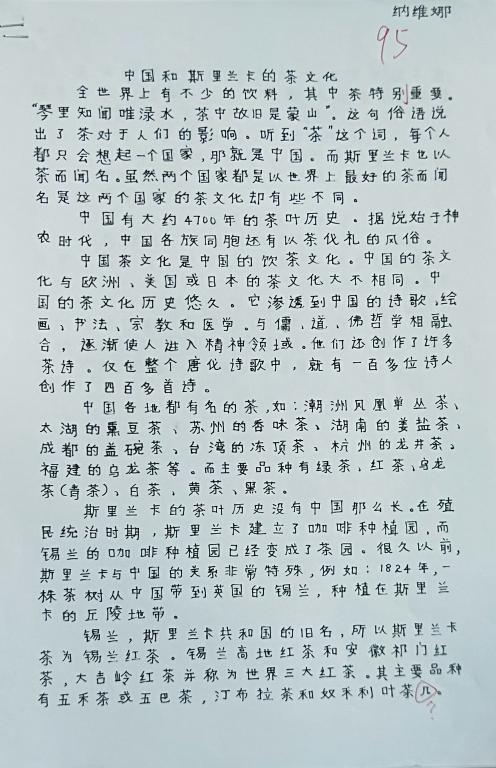 纳维娜
95
中国和斯里兰卡的茶文化
全世界上有不少的饮料，其中茶特别重要。
“琴里知闻唯渌水，茶中故旧是蒙山”。这句俗语说
出了茶对于人们的影响。听到“茶”这个词，每个人
都只会想起一个国家，那就是中国。而斯里兰卡也以
茶而闻名。虽然两个国家都是以世界上最好的茶而闻
名是这两个国家的茶文化却有些不同。
中国有大约4700年的茶叶历史．据说始于神
农时代，中国各族同胞还有以茶代礼的风俗。
中国茶文化是中国的饮茶文化。中国的茶文
化与欧洲、美国或日本的茶文化大不相同。中
国的茶文化历史悠久。它渗透到中国的诗歌，绘
画、书法、宗教和医学。与儒、道、佛哲学相融
合，逐渐使人进入精神领域。他们还创作了许多
茶诗。仅在整个唐化诗歌中，就有一百多位诗人
创作了四百多首诗。
中国各地都有名的茶，如：潮洲凤凰单丛茶、
太湖的熏豆茶、苏州的香味茶、湖南的姜盐茶、
成都的盖碗茶、台湾的冻顶茶、杭州的龙井茶、
福建的乌龙茶等。而主要品种有绿茶、红茶、乌龙
茶（青茶）、白茶，黄茶、黑茶。
斯里兰卡的茶叶历史没有中国那么长。在殖
民统治时期，斯里兰卡建立了咖啡种植园，而
锡兰的咖啡种植园已经变成了茶园。很久以前，
斯里兰卡与中国的关系非常特殊，例如：1824年，一
株茶树从中国带到英国的锡兰，种植在斯里兰
卡的丘陵地带。
锡兰，斯里兰卡共和国的旧名，所以斯里兰卡
茶为锡兰红茶。锡兰高地红茶和安徽祁门红
茶，大吉岭红茶并称为世界三大红茶。其主要品种
有五禾茶或五巴茶，汀布拉茶和奴禾利叶茶几。